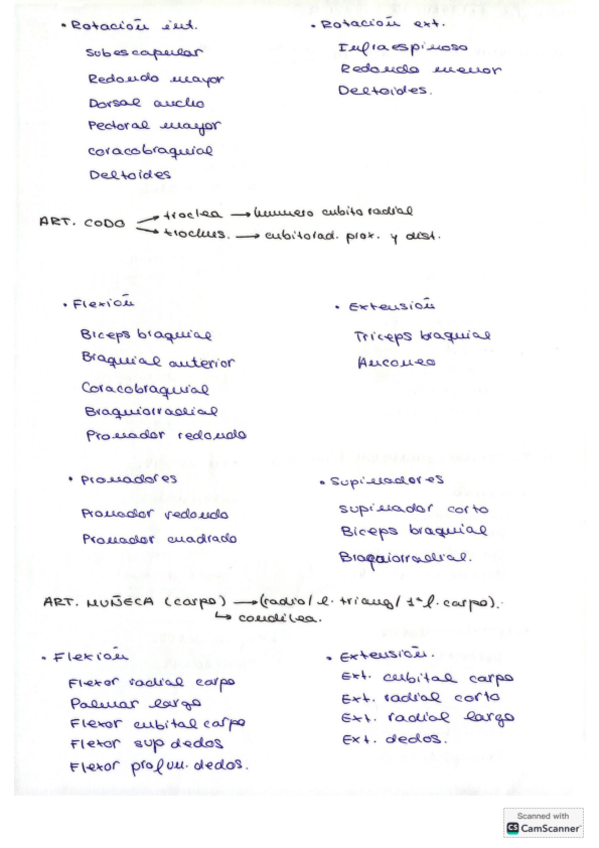 • Rotación int.
Subescapular
Redondo mayor
Dorsal ancho
Pectoral mayor
coracobraquial
Deltoides
• Rotación ext.
Infraespinoso
Redondo menor
Deltoides.
ART. CODO → troclea → humero cubito radial
→ trochus. → cubitorad. prox. y dist.
• Flexión
Biceps braquial
Braquial anterior
Coracobraquial
Braquiorradial
Pronador redondo
• Extensión
Triceps braquial
Anconeo
• Pronadores
Pronador redondo
Pronador cuadrado
• Supinadores
supinador corto
Biceps braquial
Braquiorradial.
ART. MUÑECA (carpo) → (radio/ l. triang/ 1ª l. carpo).
↳ condilea.
• Flexión
Flexor radial carpo
Palmar largo
Flexor cubital carpo
Flexor sup dedos
Flexor profun. dedos.
• Extensión.
Ext. cubital carpo
Ext. radial corto
Ext. radial largo
Ext. dedos.
Scanned with
CS CamScanner